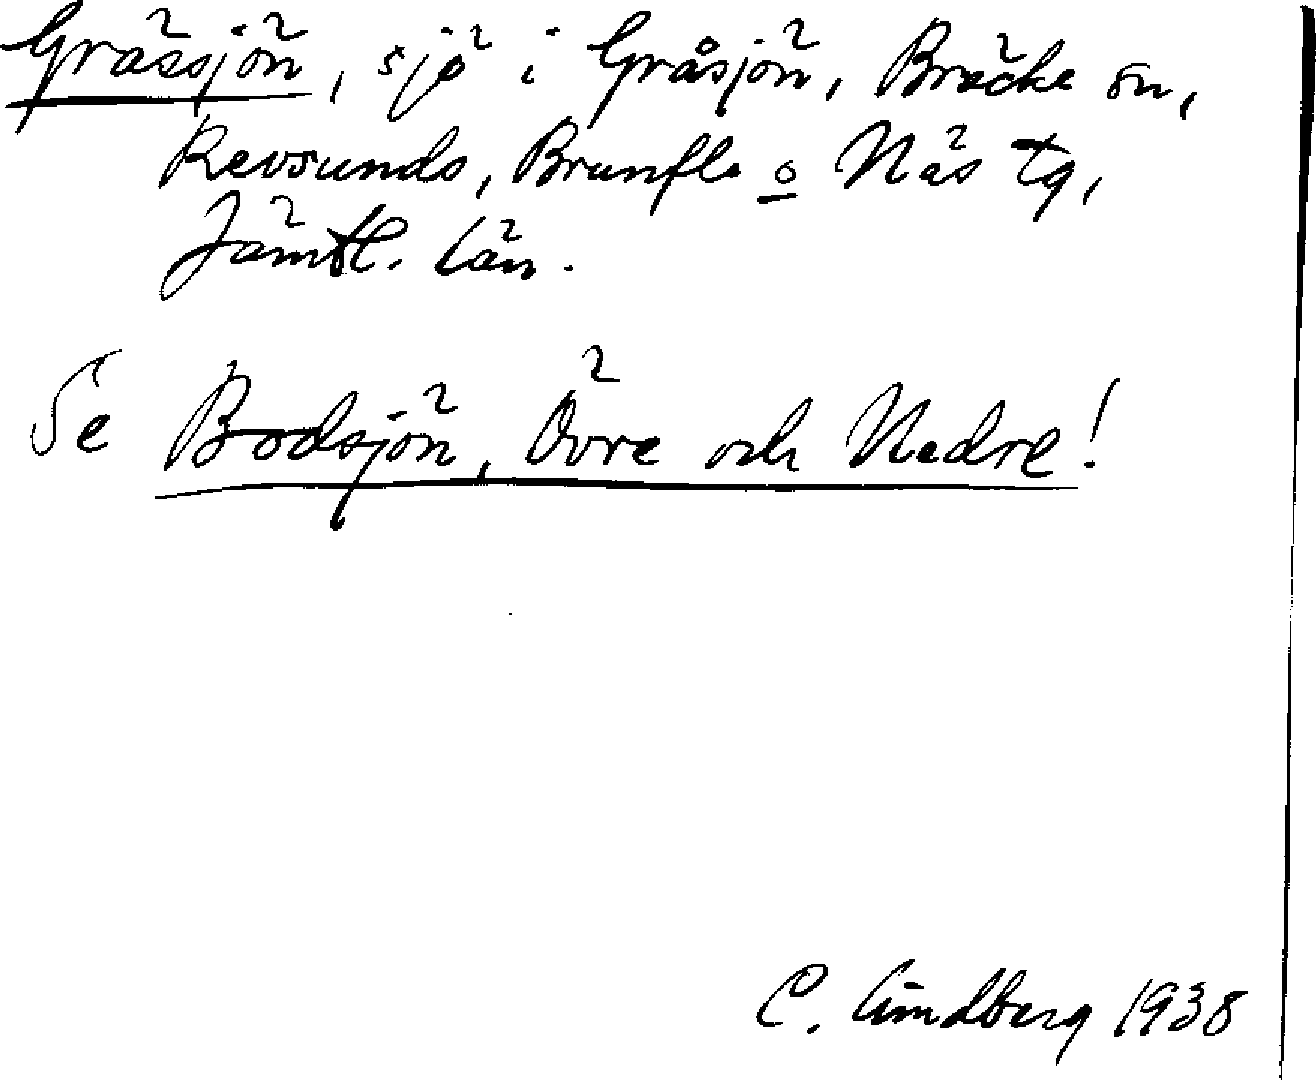 Grässjön, sjö i Gråsjön, Bräcke sn,
Revsunds, Brunflo o Näs tg,
Jämtl. län.
Se Bodsjön, Övre och Nedre!
C. Lindberg 1938